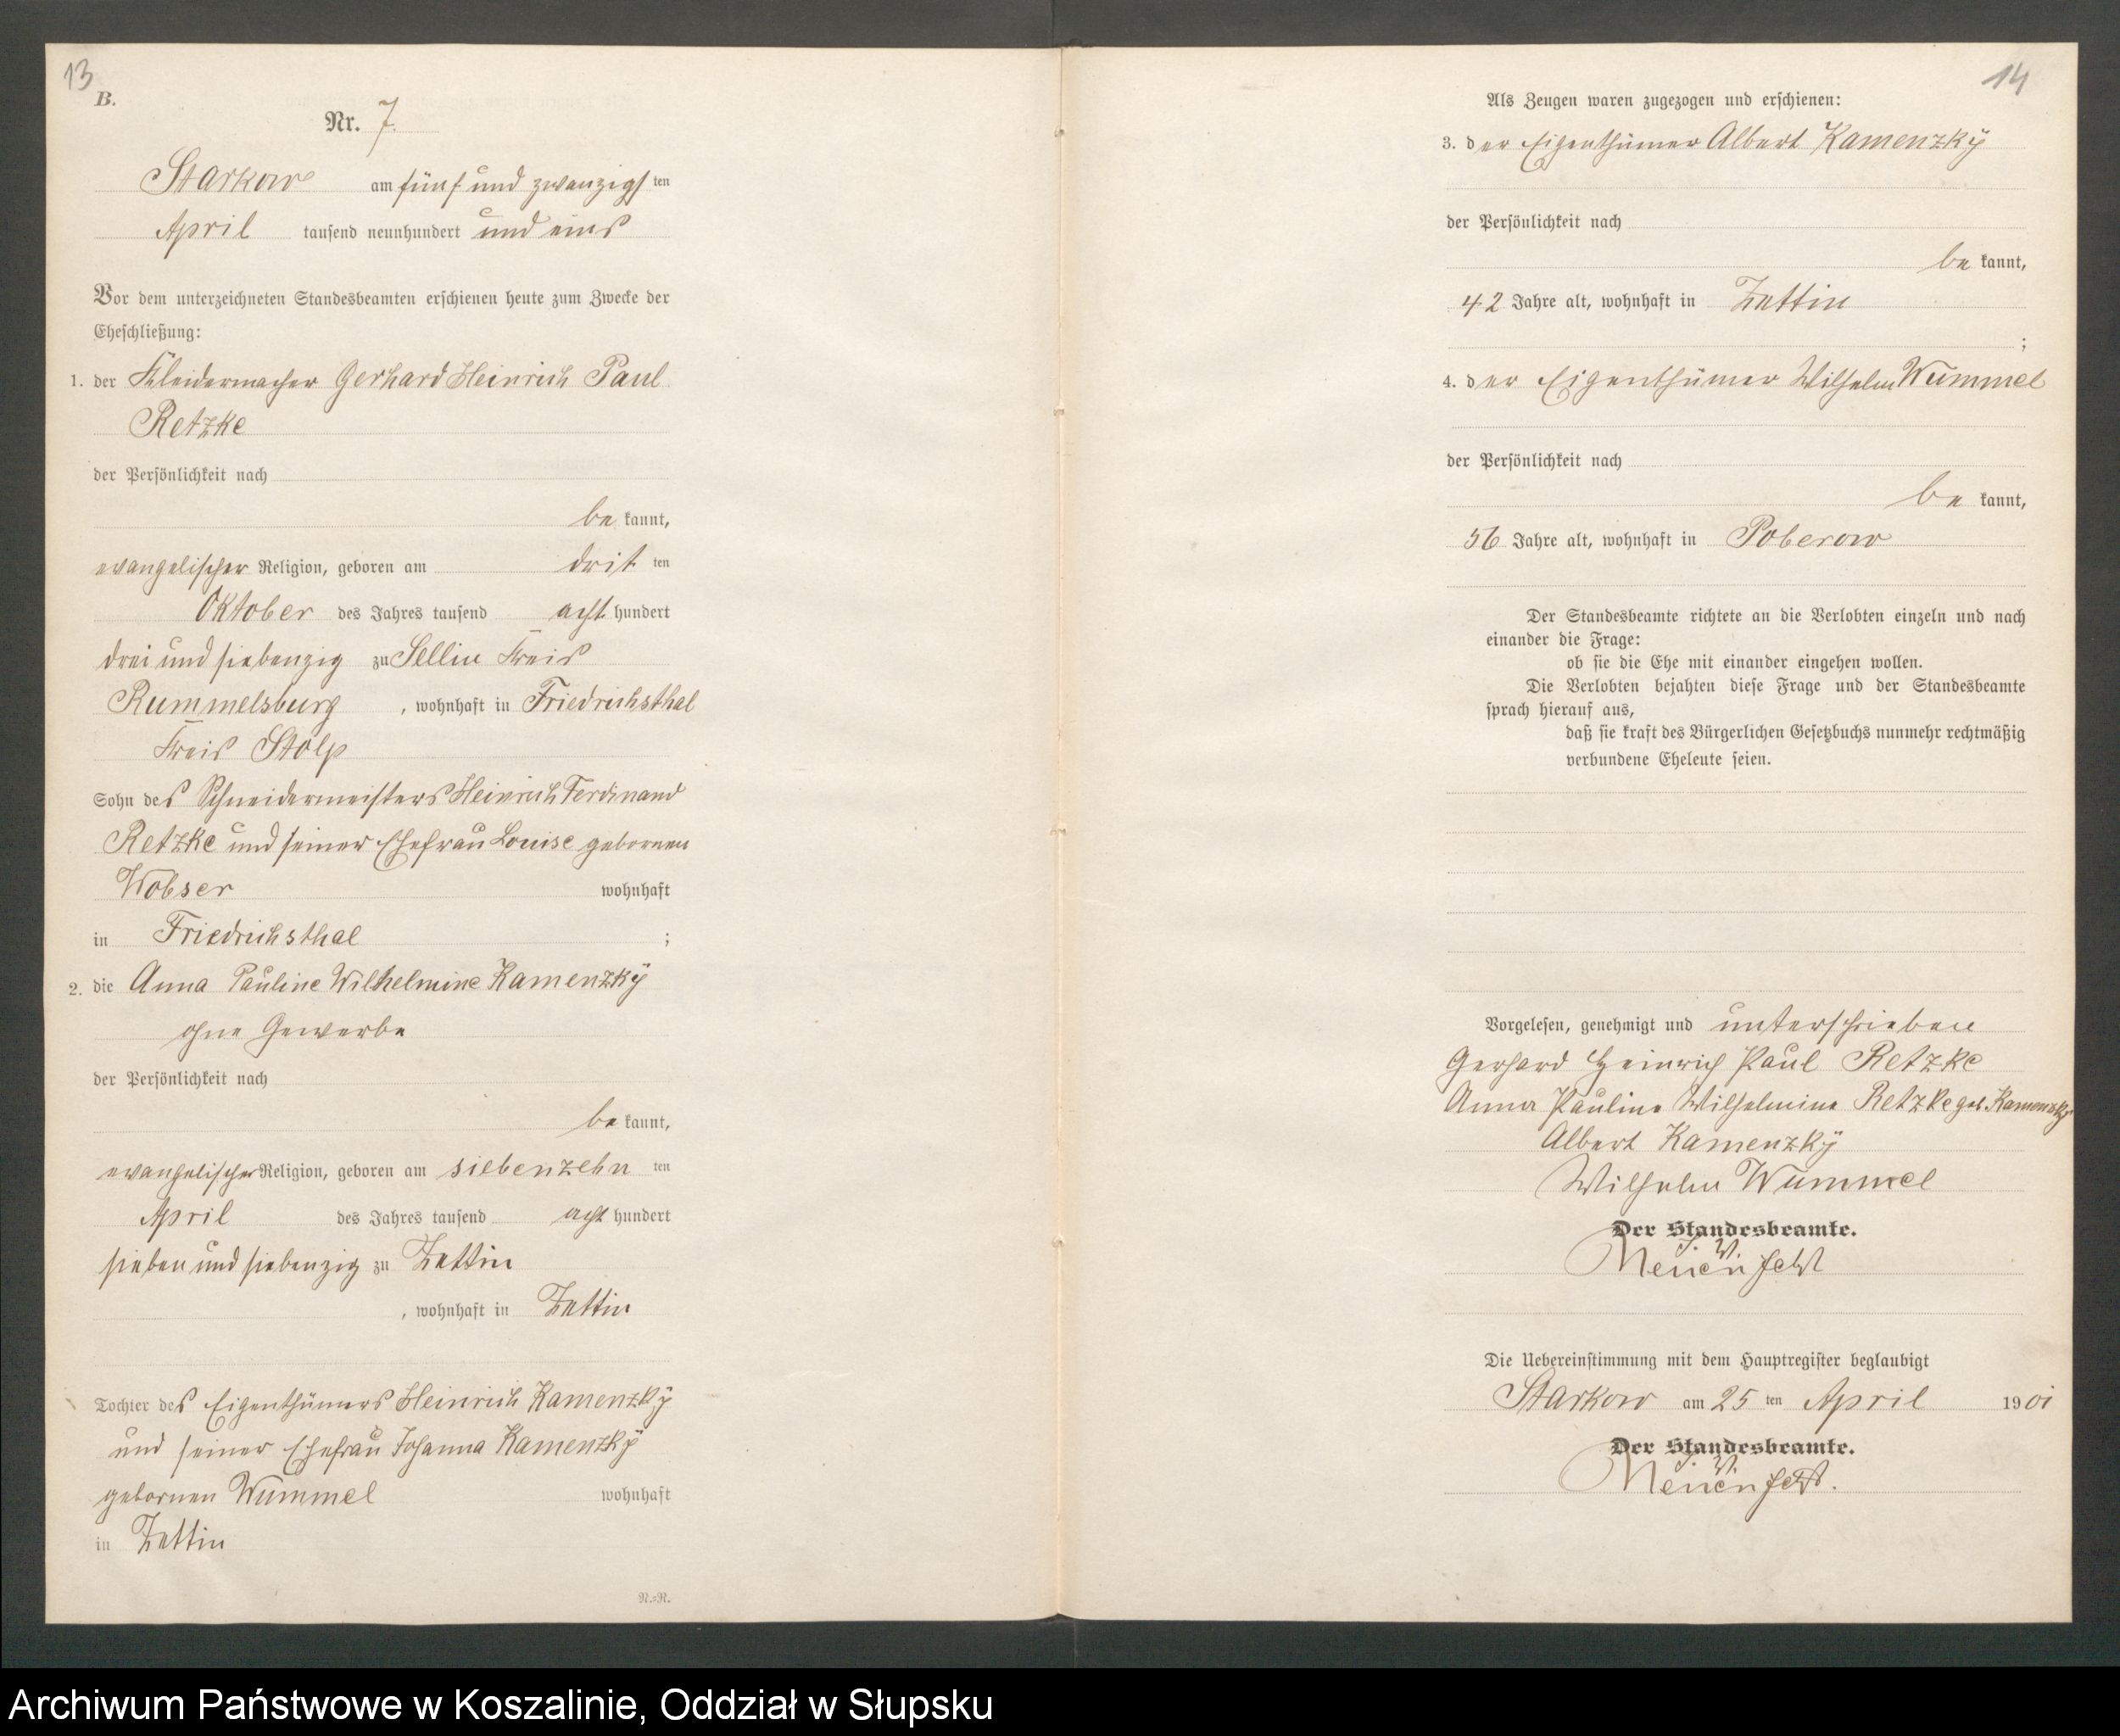 13
B.
Nr. 7.
Starkow am fünf und zwanzigsten
April tausend neunhundert und eins
Vor dem unterzeichneten Standesbeamten erschienen heute zum Zwecke der
Eheschließung:
1. der Kleidermacher Gerhard Heinrich Paul
Retzke
der Persönlichkeit nach
be kannt,
evangelischer Religion, geboren am drit ten
Oktober des Jahres tausend acht hundert
drei und siebenzig zu Sellin Kreis
Rummelsburg , wohnhaft in Friedrichsthal
Kreis Stolp
Sohn des Schneidermeisters Heinrich Ferdinand
Retzke und seiner Ehefrau Louise gebornen
Wobser wohnhaft
in Friedrichsthal ;
2. die Anna Pauline Wilhelmine Kamenzky
ohne Gewerbe
der Persönlichkeit nach
be kannt,
evangelischer Religion, geboren am siebenzehn ten
April des Jahres tausend acht hundert
sieben und siebenzig zu Zettin
, wohnhaft in Zettin
Tochter des Eigenthümers Heinrich Kamenzky
und seiner Ehefrau Johanna Kamenzky
gebornen Wummel wohnhaft
in Zettin
N.=R.
14
Als Zeugen waren zugezogen und erschienen:
3. der Eigenthümer Albert Kamenzky
der Persönlichkeit nach
be kannt,
42 Jahre alt, wohnhaft in Zettin
;
4. der Eigenthümer Wilhelm Wummel
der Persönlichkeit nach
be kannt,
56 Jahre alt, wohnhaft in Poberow
Der Standesbeamte richtete an die Verlobten einzeln und nach
einander die Frage:
ob sie die Ehe mit einander eingehen wollen.
Die Verlobten bejahten diese Frage und der Standesbeamte
sprach hierauf aus,
daß sie kraft des Bürgerlichen Gesetzbuchs nunmehr rechtmäßig
verbundene Eheleute seien.
Vorgelesen, genehmigt und unterschrieben
Gerhard Heinrich Paul Retzke
Anna Pauline Wilhelmine Retzke geb. Kamenzky
Albert Kamenzky
Wilhelm Wummel
Der Standesbeamte.
J. V.
Die Uebereinstimmung mit dem Hauptregister beglaubigt
Starkow am 25 ten April 1901
Der Standesbeamte.
J. V.
Archiwum Państwowe w Koszalinie, Oddział w Słupsku